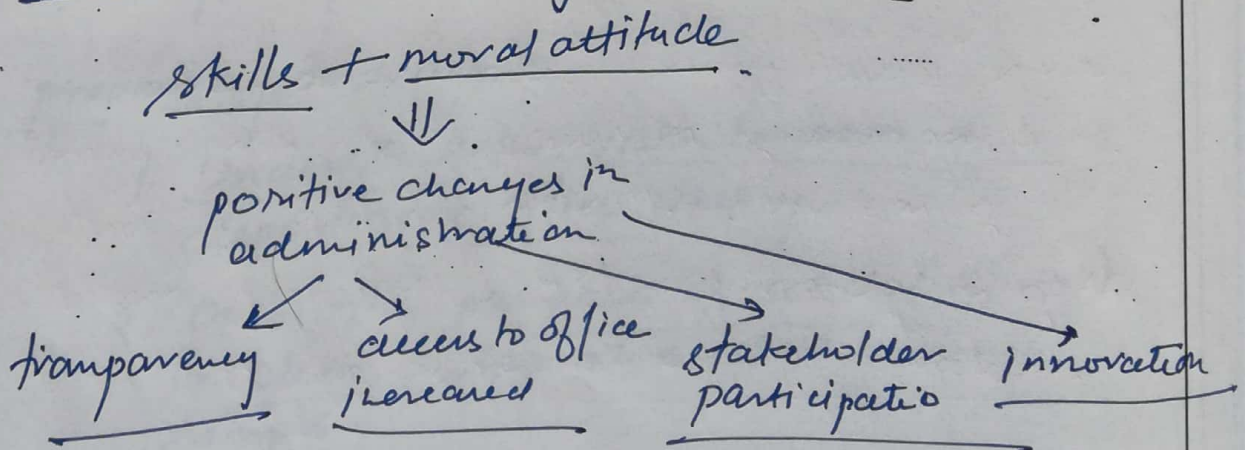 skills + moral attitude
⇓
positive changes in
administration
transparency
access to office
increased
stakeholder
participatio
innovation